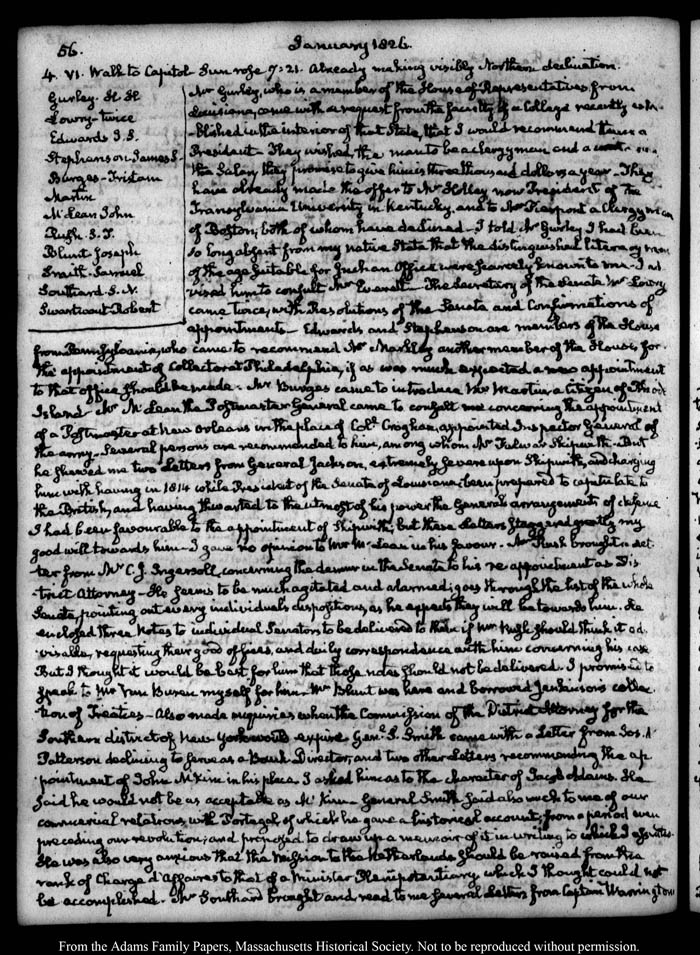 56.
January 1826.
4. VI. Walk to Capitol Sun rose 7:21. Already making visibly Northern declination.
Gurley. H. H
Lowry-twice
Edwards S. S.
Stephenson James S-
Burges-Tristam
Martin
McLean John
Rush S. T.
Blunt Joseph
Smith-Samuel
Southard S. N.
Swartwout-Robert
Mr Gurley, who is a member of the House of Representatives from
Louisiana, came with a request from the faculty of a College recently esta-
-blished in the interior of that State, that I would recommend them a
President- They wished the man to be a clergyman and a
the Salary they promise to give him is three thousand dollars a year- They
have already made the offer to Mr Holley now President of the
Transylvania University in Kentucky, and to Mr Pierpont a Clergyman
of Boston, both of whom have declined- I told Mr Gurley I had been
so long absent from my native State that the distinguished Literary men
of the age suitable for such an Office were scarcely known to me- I ad
vised him to consult Mr Everett- The Secretary of the Senate Mr Lowry
came twice, with Resolutions of the Senate and Confirmations of
appointments- Edwards and Stephenson are members of the House
from Pennsylvania, who came to recommend Mr Markley another member of the House, for
the appointment of Collector at Philadelphia, if as was much expected a new appointment
to that office should be made- Mr Burges came to introduce Mr Martin a citizen of Rhode
Island- Mr McLean the Postmaster General came to consult me concerning the appointment
of a Postmaster at New Orleans in the place of Coll. Croghan, appointed Inspector General of
the army- Several persons are recommended to him, among whom Mr Fulwar Skipwith- But
he shewed me two Letters from General Jackson, extremely severe upon Skipwith, and charging
him with having in 1814 while President of the Senate of Louisiana been prepared to capitulate to
the British, and having thwarted to the utmost of his power the General's arrangements of defence
I had been favourable to the appointment of Skipwith; but these Letters staggered greatly my
good will towards him- I gave no opinion to Mr McLean in his favour- Mr Rush brought a Let
ter from Mr C. J. Ingersoll, concerning the demur in the Senate to his re-appointment as Dis
trict Attorney- He seems to be much agitated and alarmed; goes through the list of the whole
Senate, pointing out every individual's dispositions, as he expects they will be towards him. He
enclosed three Notes to individual Senators to be delivered to them if Mr Rush should think it ad
visable, requesting their good offices, and daily correspondence with him concerning his case
But I thought it would be best for him that those notes should not be delivered. I promised to
speak to Mr Van Buren myself for him. Mr Blunt was here and borrowed Jenkinson's collec
tion of Treaties- Also made inquiries when the Commission of the District Attorney for the
Southern district of New York would expire Genl. S. Smith came with a Letter from Jos. 
Patterson declining to serve as a Bank Director, and two other Letters recommending the ap
pointment of John McKim in his place. I asked him as to the character of Jacob Adams. He
said he would not be as acceptable as McKim- General Smith said also much to me of our
commercial relations with Portugal, of which he gave a historical account; from a period even
preceding our revolution; and proposed to draw up a memoir of it in writing to which I assented.
He was also very anxious that the Mission to the Netherlands should be raised from the
rank of Chargé d'Affaires to that of a Minister Plenipotentiary which I thought could not
be accomplished- Mr Southard brought and read to me several Letters from Captain Warrington
From the Adams Family Papers, Massachusetts Historical Society. Not to be reproduced without permission.